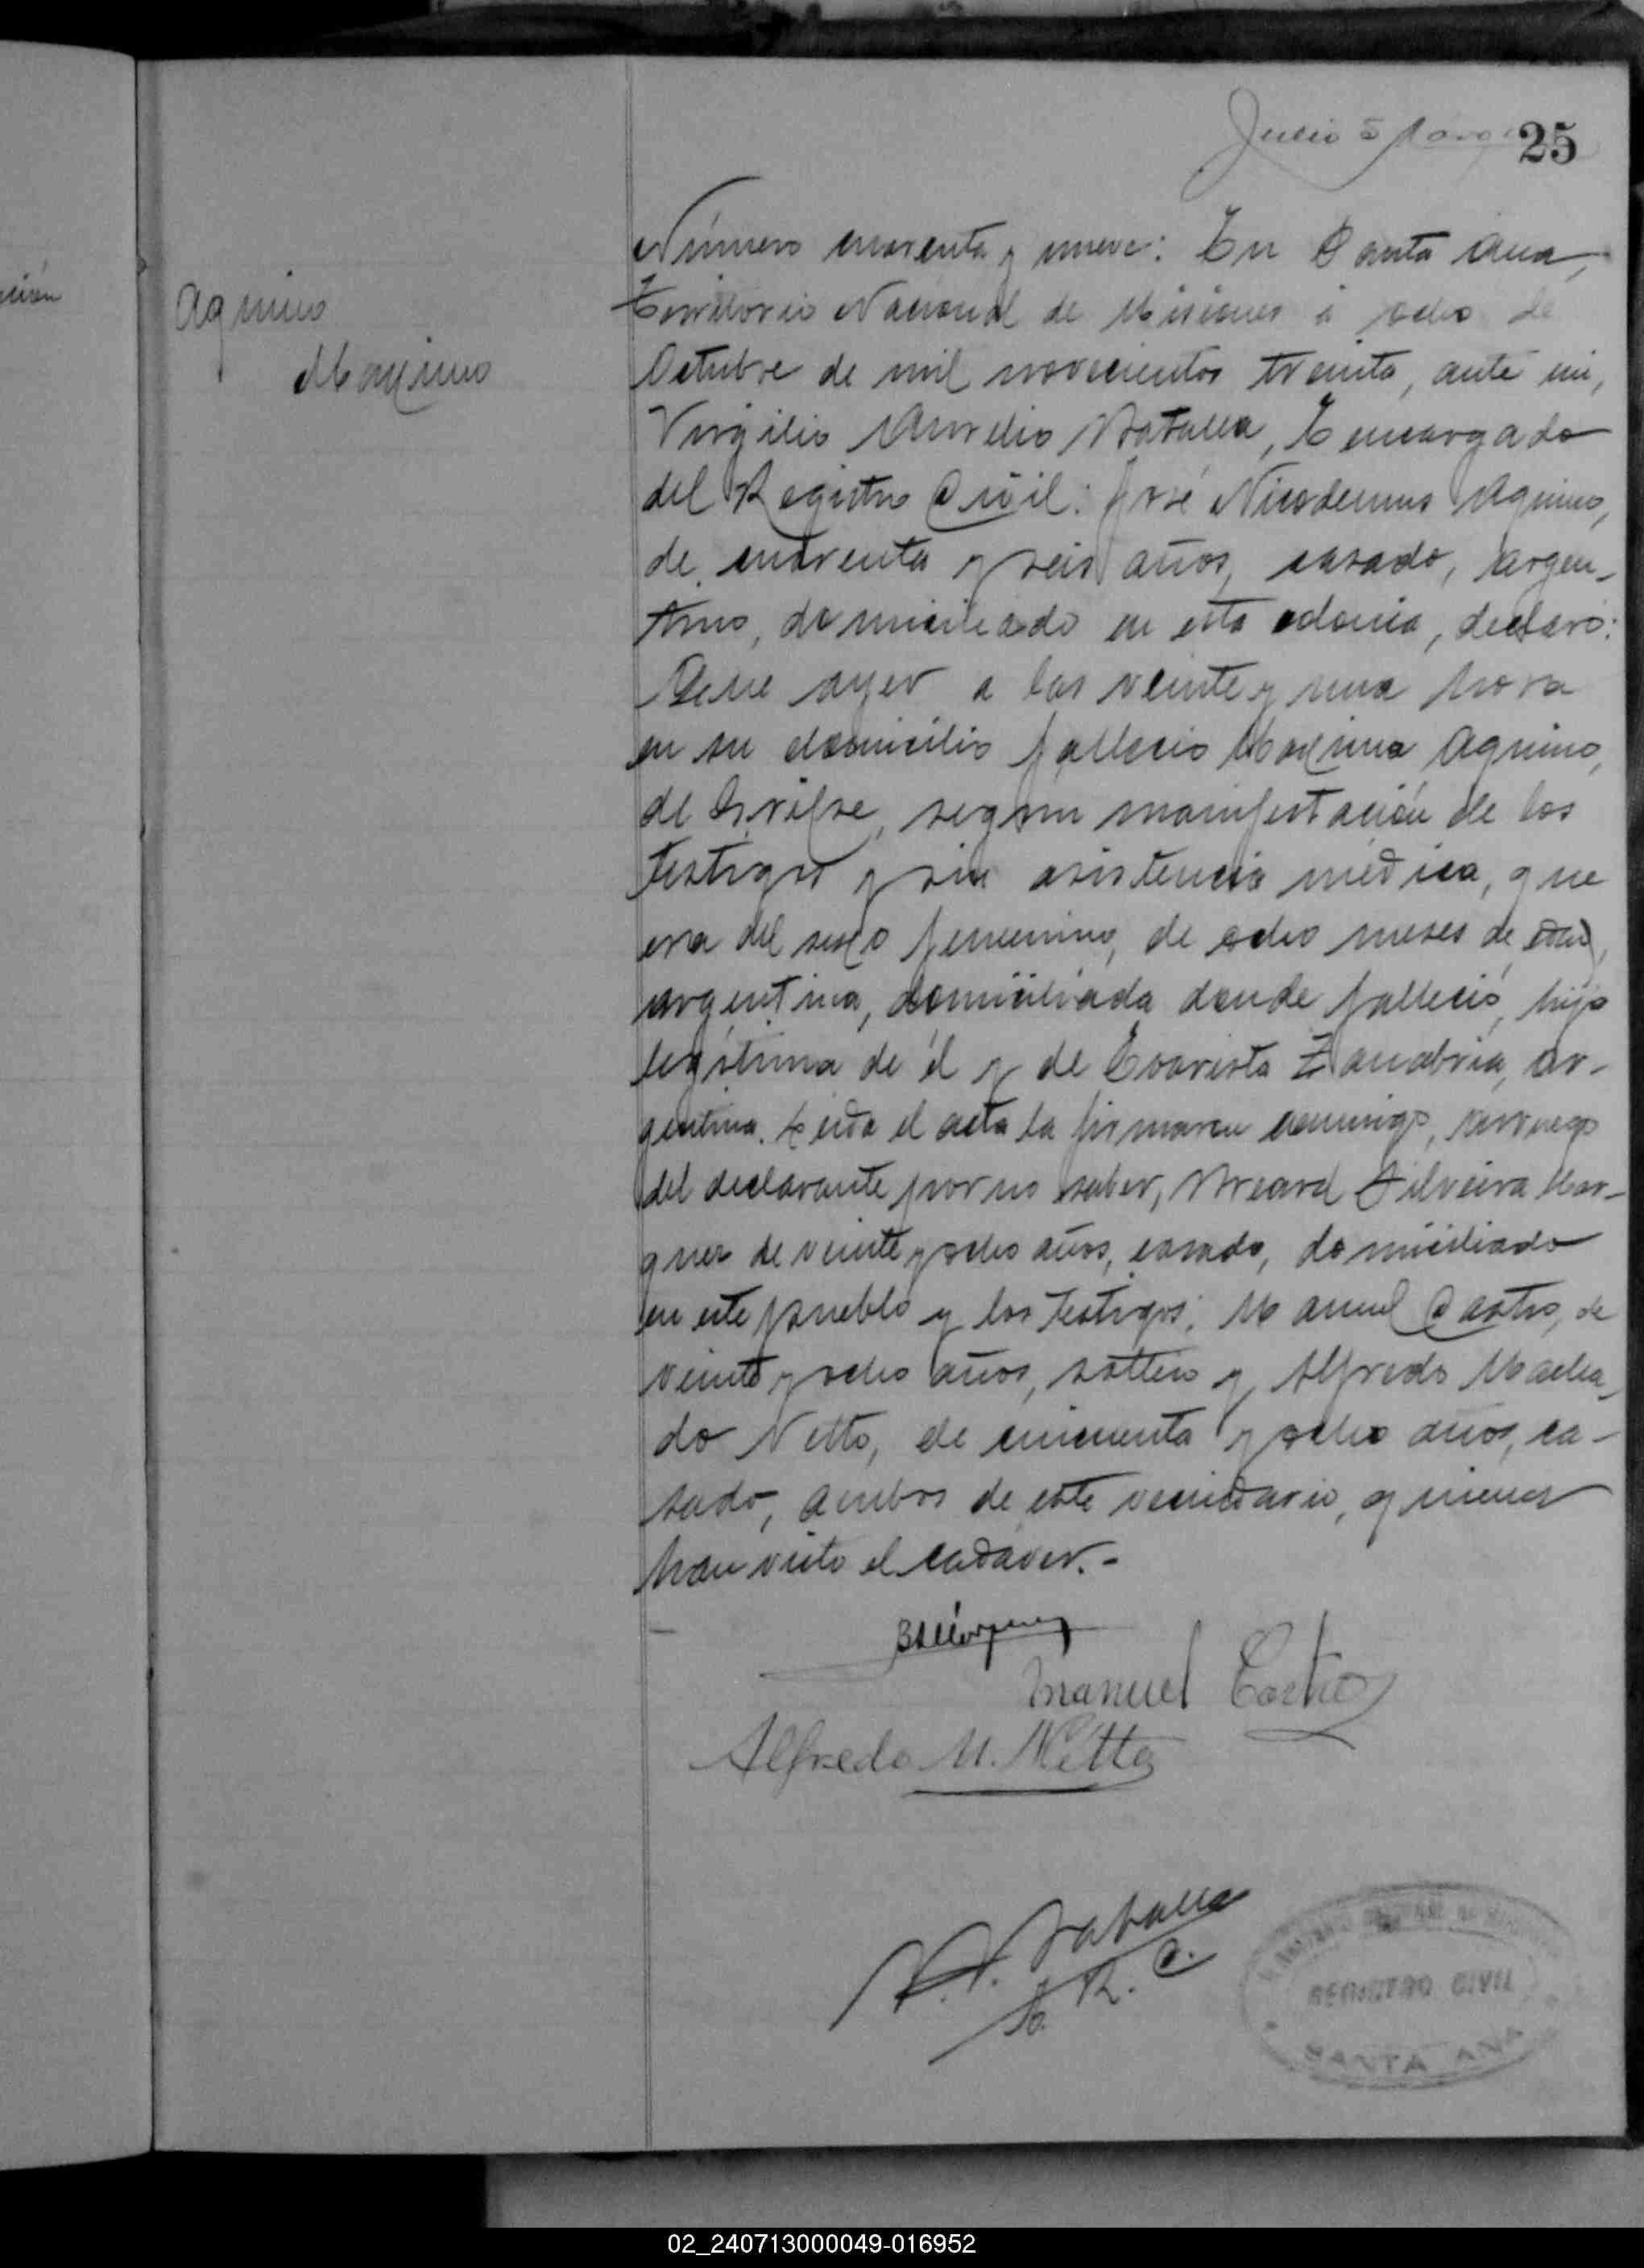 Julio
25
Número cuarenta y nueve: En Santa Ana,
Territorio Nacional de Misiones á ocho de
Octubre de mil novecientos treinta, ante mi,
Virgilio Aurelio Bataller, Encargado
del Registro Civil: José Nicodemus Aquino,
de cuarenta y seis años, casado, argen-
tino, domiciliado en esta colonia, declaró:
Que ayer a las veinte y una hora
en su domicilio falleció Maxima Aquino,
de Grippe, según manifestación de los
testigos y sin asistencia médica, que
era del sexo femenino, de ocho meses de edad,
argentina, domiciliada donde falleció, hija
legítima de él y de Evarista Zanabria, ar-
gentina. Leida el acta la firmaron conmigo, a ruego
del declarante por no saber, Breard Silveira Mar-
quez de veinte y ocho años, casado, domiciliado
en este pueblo y los testigos: Manuel Castro, de
veinte y ocho años, soltero y Alfredo Macha-
do Netto, de cincuenta y ocho años, ca-
sado, ambos de este vecindario, quienes
han visto el cadáver.-
Aquino
Maxima
Manuel Castro
Alfredo M. Netto
E. R. C.
REGISTRO CIVIL
SANTA ANA
02_240713000049-016952